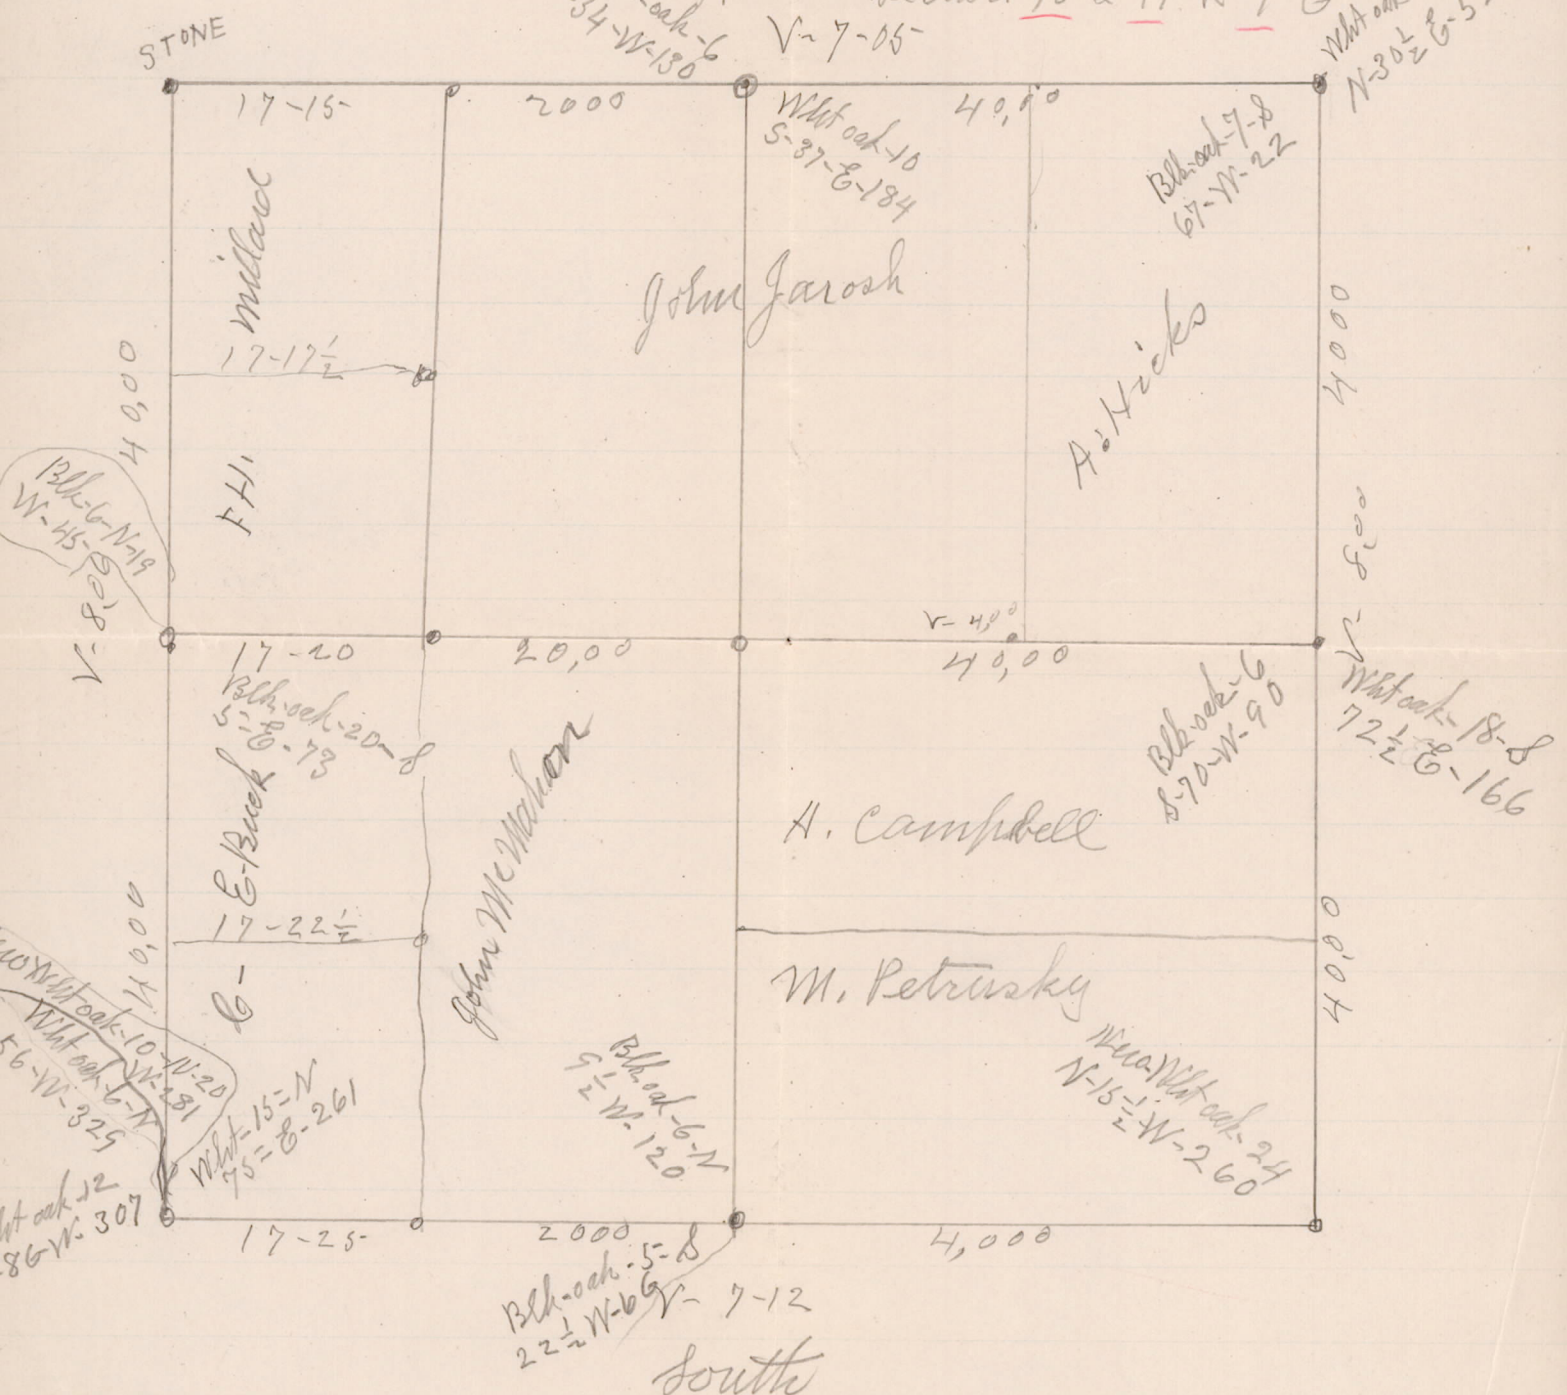 STONE
oak-6
34-W-130
V-7-05
Wht oak
N-30½ E-5
17-15
2000
40,00
Wht oak-10
S-37-E-184
Blk-oak-7-S
67-W-22
Millard
John Jarosh
40,00
17-17½
A. Hicks
4000
F.H.
Blk-6-N-19
W-45
V-8,00
V-8,00
V-4,00
17-20
20,00
40,00
Blk-oak-20-S
5½-E-73
Blk oak-6
S-70-W-90
Wht oak-18-S
72½-E-166
E-Buck
John McMahon
H. Campbell
40,00
17-22½
40,00
C-
M. Petrusky
Wht oak-10-N-20
W-281
Wht oak-6-N
56-W-329
Wht-15=N
75=E-261
Blk oak-6-N
9½ W-120
Wht oak-24
N-15½-W-260
oak-12
86-W-307
17-25
2000
4,000
Blk-oak-5-S
22½ W-66
V-7-12
South